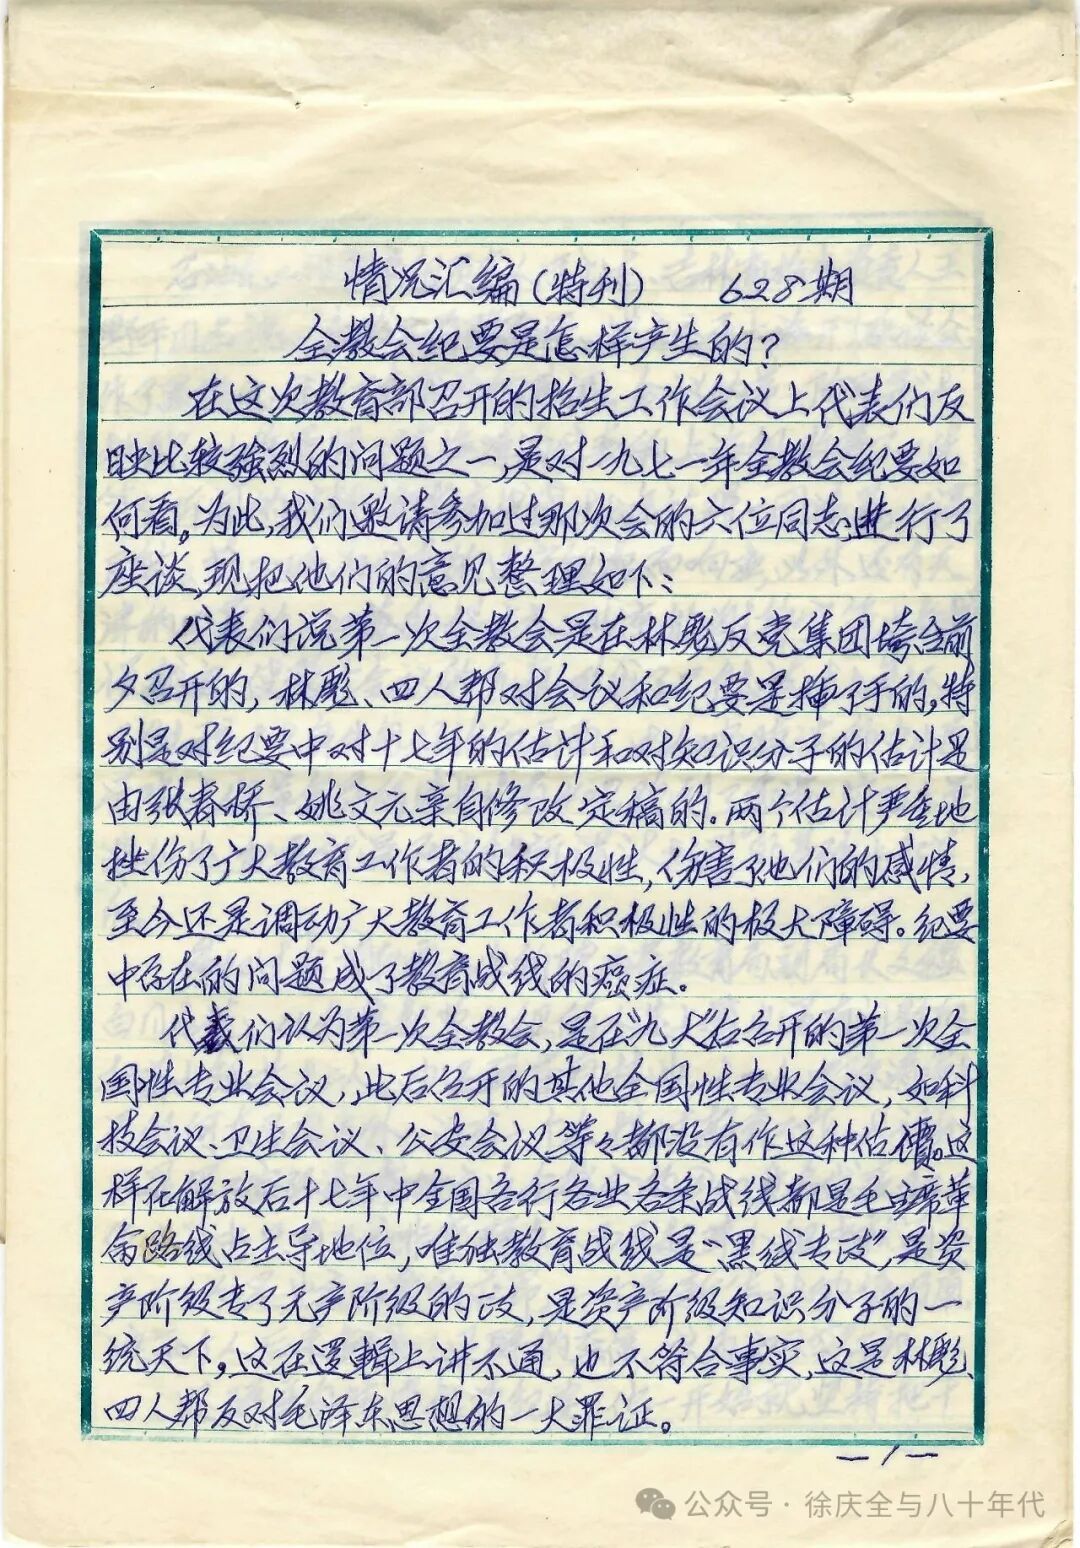 情况汇编(特刊) 628期
全教会纪要是怎样产生的?
在这次教育部召开的招生工作会议上代表们反
映比较强烈的问题之一,是对一九七一年全教会纪要如
何看。为此,我们邀请参加过那次会的六位同志,进行了
座谈,现把他们的意见整理如下:
代表们说第一次全教会是在林彪反党集团垮台前
夕召开的,林彪、四人帮对会议和纪要是插了手的,特
别是对纪要中对十七年的估计和对知识分子的估计是
由张春桥、姚文元亲自修改定稿的。两个估计严重地
挫伤了广大教育工作者的积极性,伤害了他们的感情,
至今还是调动广大教育工作者积极性的极大障碍。纪要
中存在的问题成了教育战线的癌症。
代表们认为第一次全教会,是在“九大”后召开的第一次全
国性专业会议,此后召开的其他全国性专业会议,如科
技会议、卫生会议、公安会议等々都没有作这种估价。这
样在解放后十七年中全国各行各业各条战线都是毛主席革
命路线占主导地位,唯独教育战线是“黑线专政”,是资
产阶级专了无产阶级的政,是资产阶级知识分子的一
统天下。这在逻辑上讲不通,也不符合事实,这是林彪、
四人帮反对毛泽东思想的一大罪证。
—1—
公众号·徐庆全与八十年代